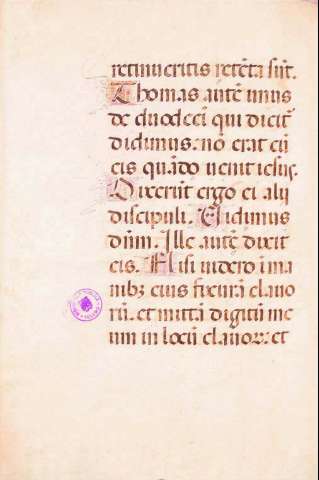 retinueritis retẽta sũt.
Thomas autẽ unus
de duodecĩ qui dicit̃
didimus. nõ erat cũ
eis quãdo uenit iesus.
Dixerũt ergo ei alij
discipuli. Uidimus
dñm. Ille autẽ dixit
eis. Nisi uidero ĩ ma
nibꝫ eius fixurã clauo
rũ. et mittã digitũ me
um in locũ clauoꝝ: et